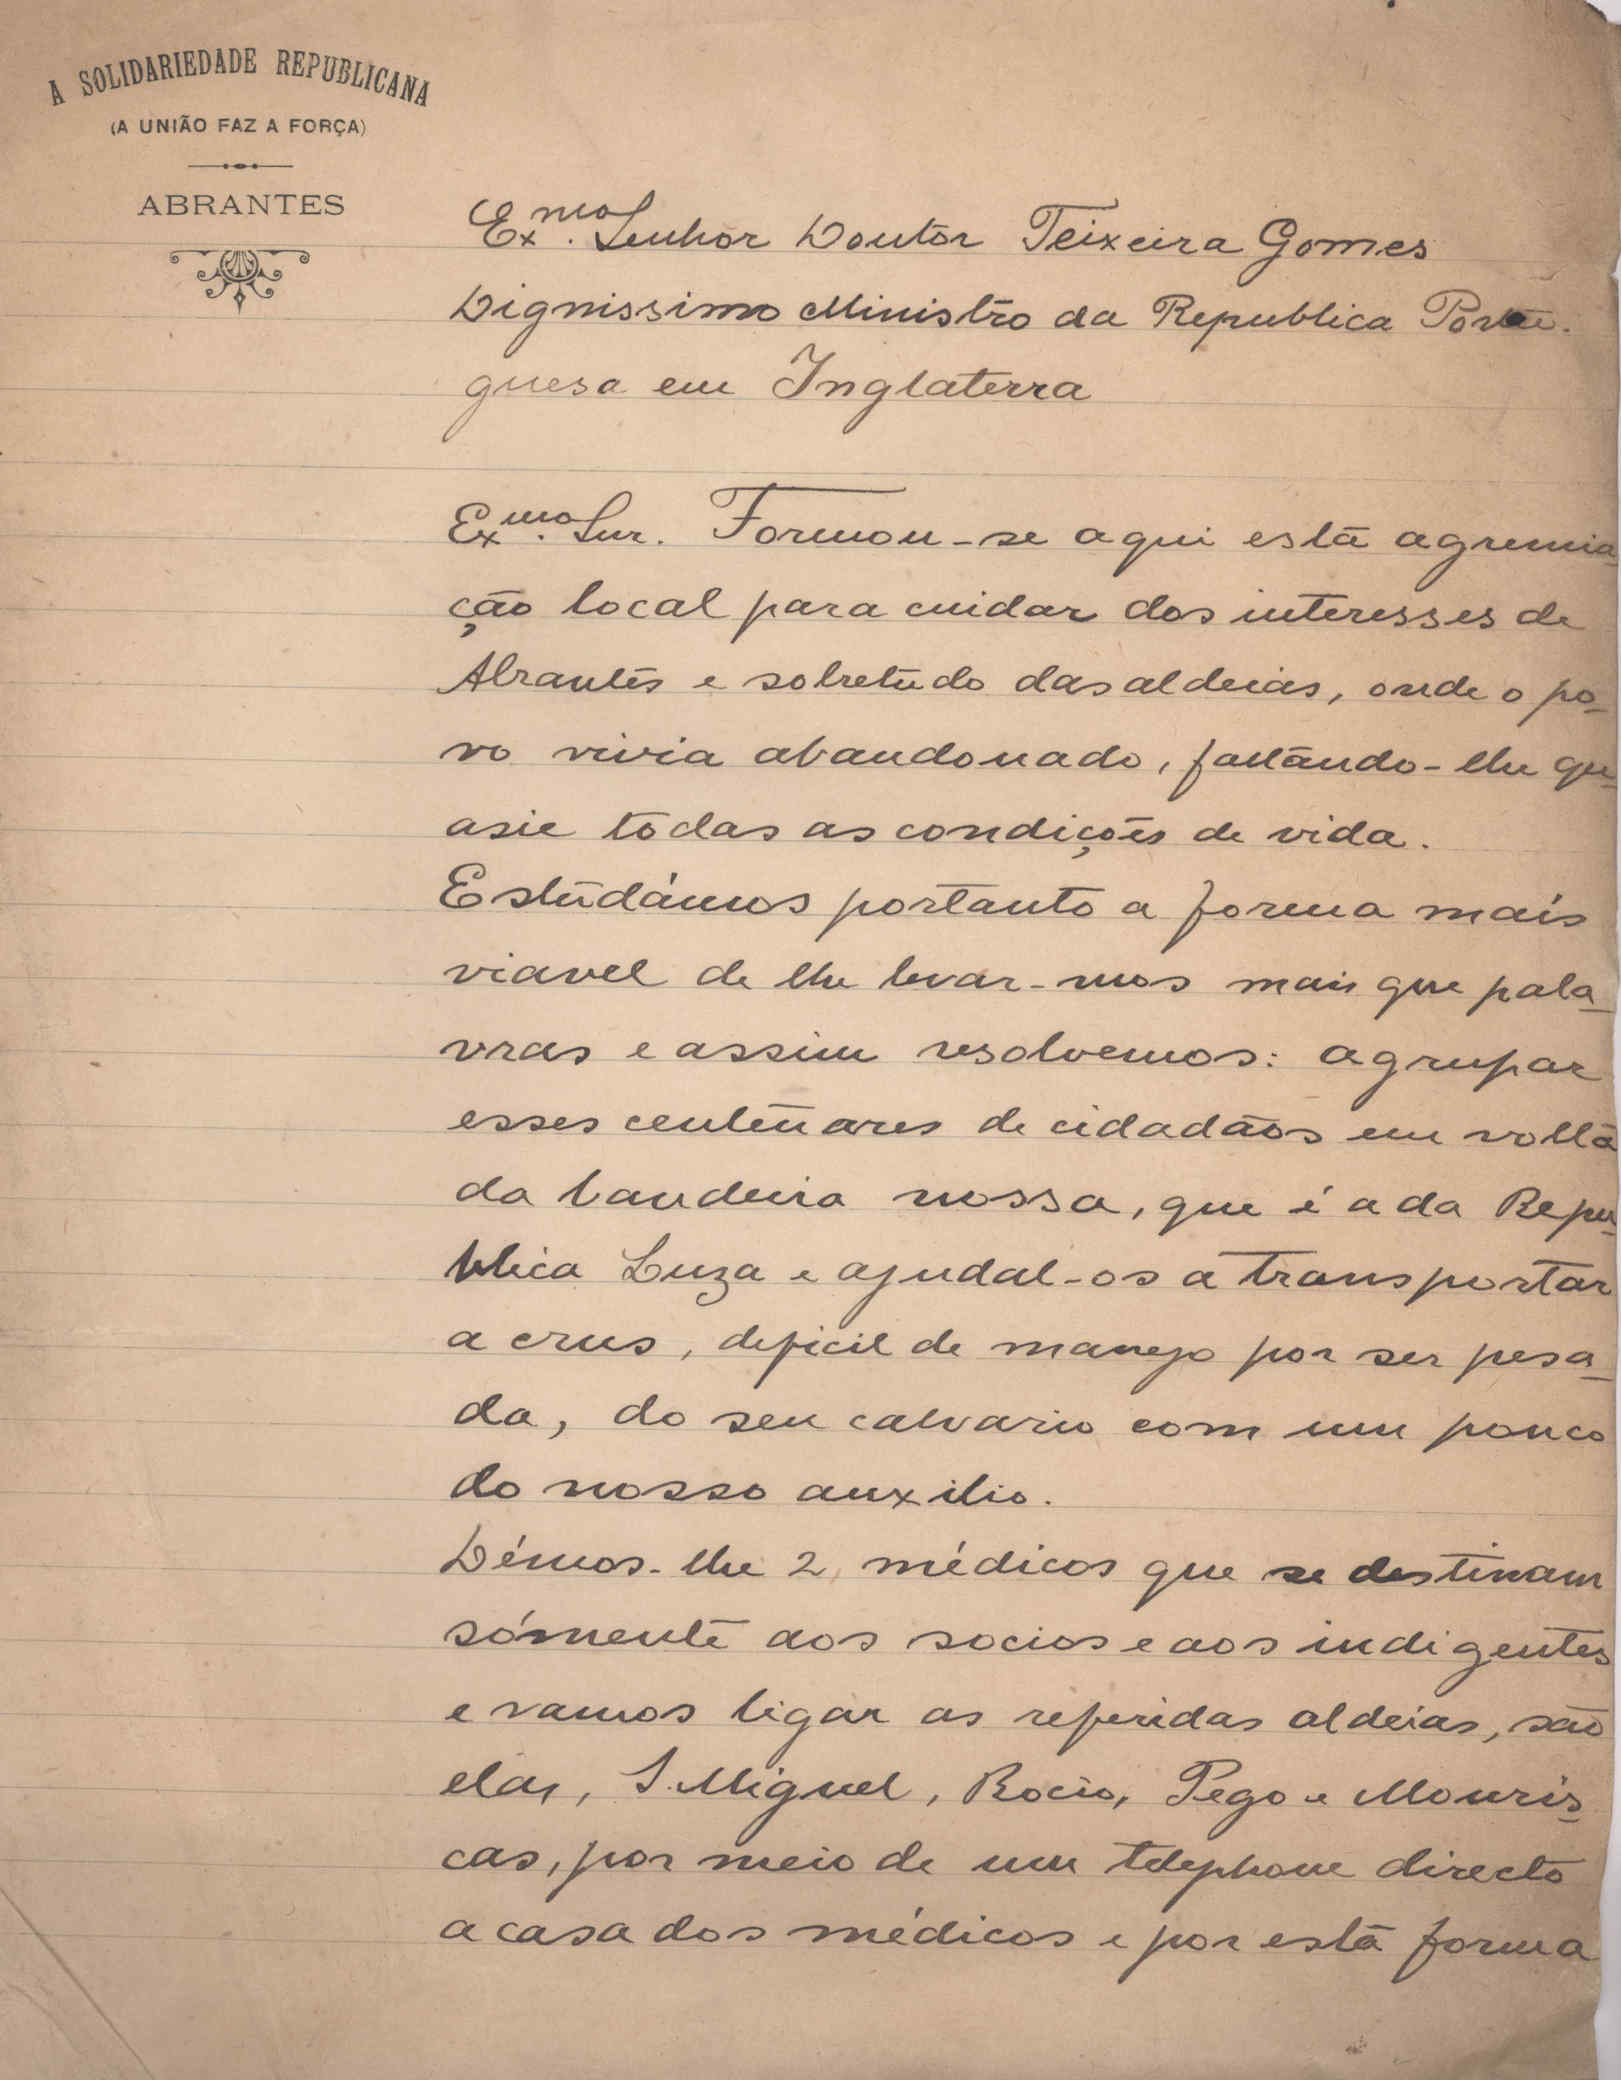 A SOLIDARIEDADE REPUBLICANA
(A UNIÃO FAZ A FORÇA)
ABRANTES
Exmo. Senhor Doutor Teixeira Gomes
Dignissimo Ministro da Republica Portu-
guesa em Inglaterra
Exmo. Snr. Formou-se aqui esta agremia-
ção local para cuidar dos interesses de
Abrantes e sobretudo das aldeias, onde o po-
vo vivia abandonado, faltando-lhe qu-
asie todas as condições de vida.
Estudámos portanto a forma mais
viavel de lhe levar-mos mais que pala-
vras e assim resolvemos: agrupar
esses centenares de cidadãos em volta
da bandeira nossa, que é a da Repu-
blica Luza e ajudal-os a transportar
a crus, deficil de manejo por ser pesa-
da, do seu calvario com um pouco
do nosso auxilio.
Démos-lhe 2 médicos que se destinam
sómente aos socios e aos indigentes
e vamos ligar as referidas aldeias, são
elas, S. Miguel, Rocio, Pego e Mouris-
cas, por meio de um telephone directo
a casa dos médicos e por esta forma